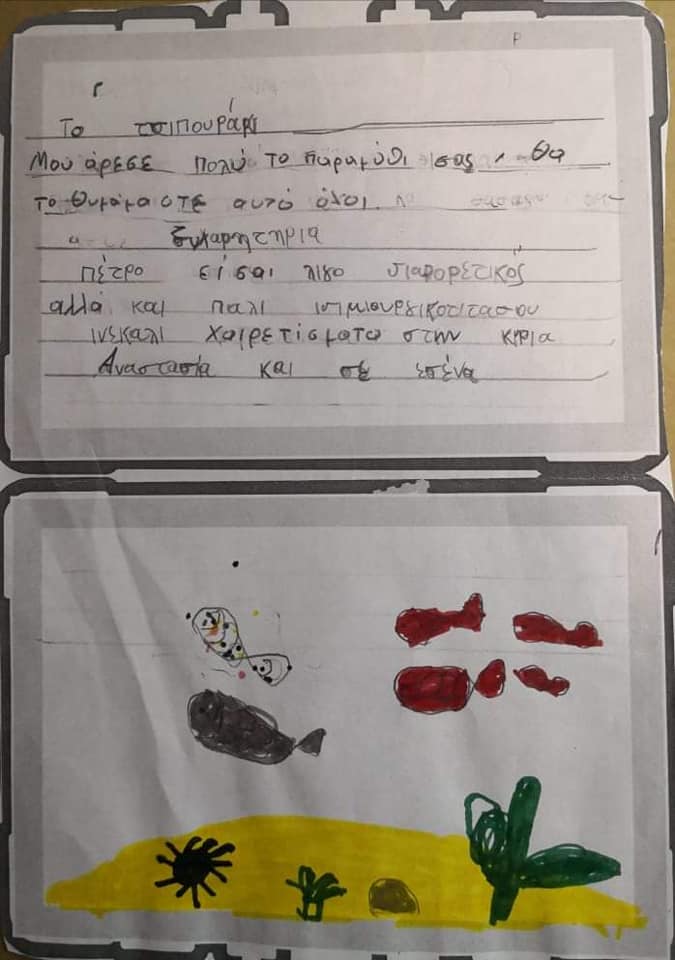 Το τσιπουράκι
Μου άρεσε πολύ το παραμύθι σας, θα
το θυμάμαστε αυτό όλοι.
Συχαρητήρια
πέτρο είσαι λίγο διαφορετικός
αλλά και παλι
χαιρετίσματα στην κιρία
Αναστασία και σε εσένα